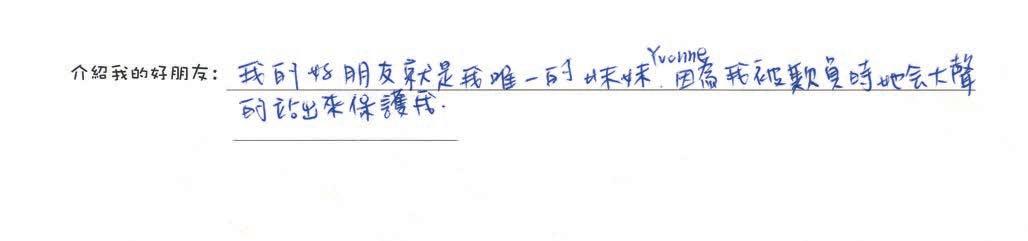 介紹我的好朋友: 我的好朋友就是我唯一的妹妹Yvonne.因為我被欺負時她会大聲
的站出來保護我.